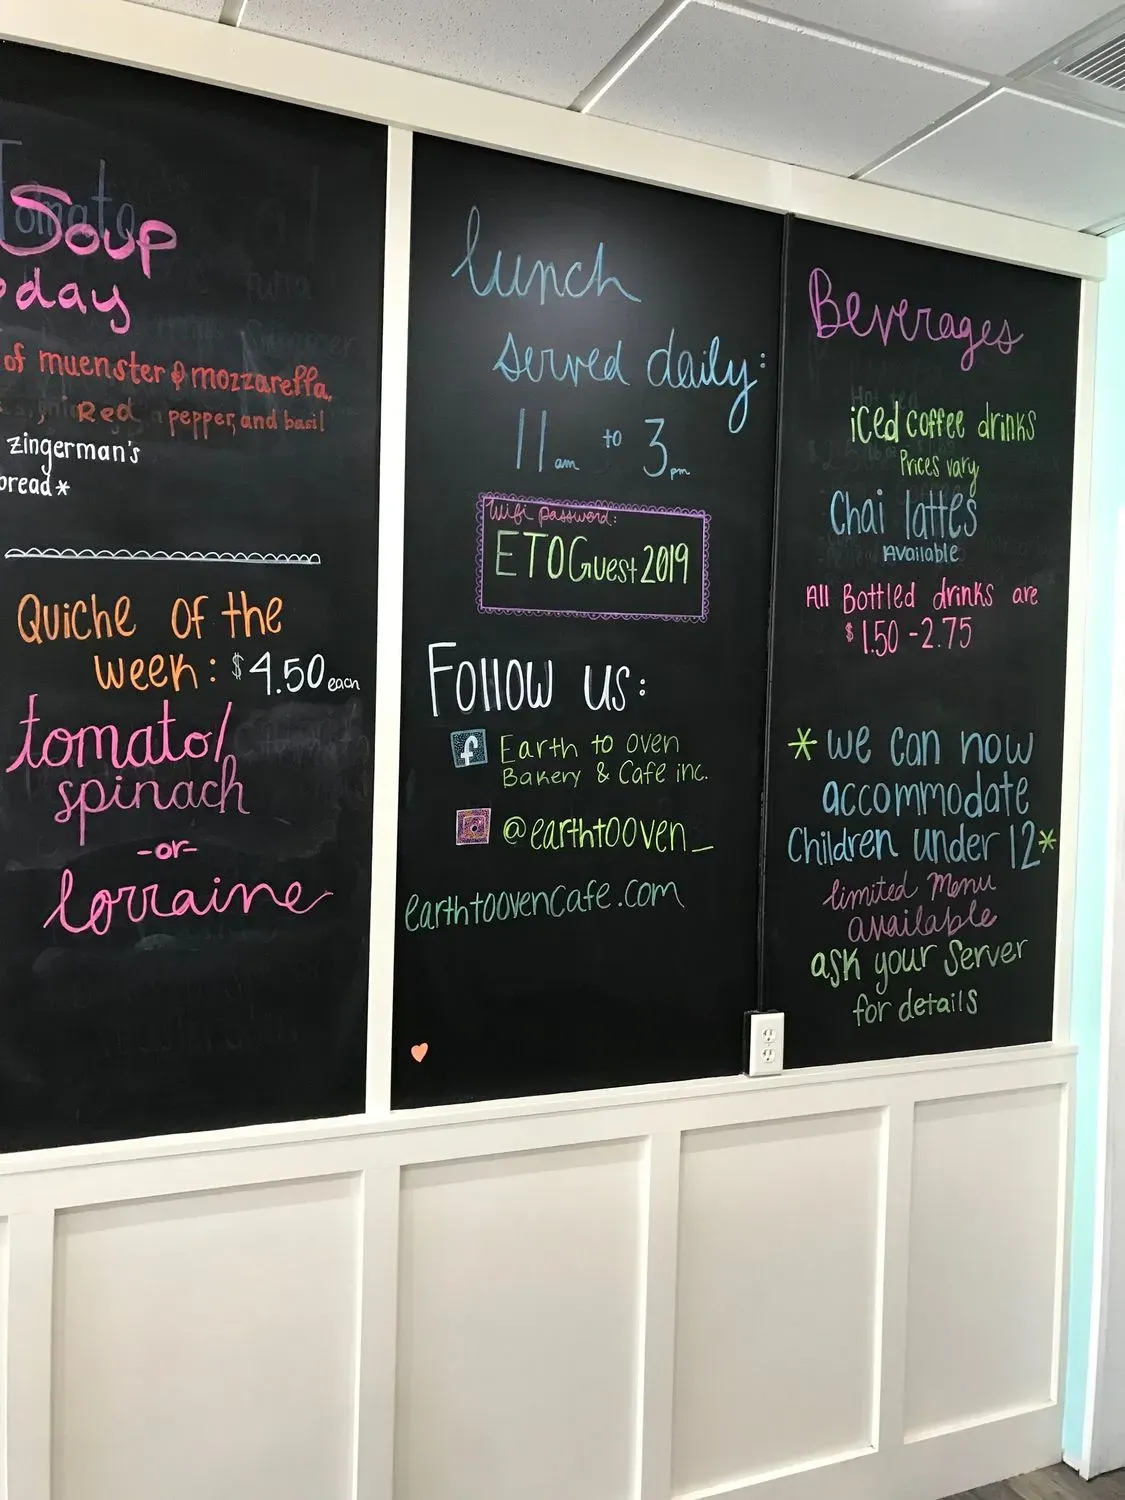 Soup
day
of muenster & mozzarella,
Red pepper, and basil
zingerman's
bread*
Quiche of the
week: $4.50 each
tomato/
spinach
-or-
lorraine
lunch
served daily:
11 am to 3 pm
Wifi password:
ETOGuest2019
Follow us:
f Earth to oven
Bakery & Cafe inc.
@earthtooven_
earthtoovencafe.com
Beverages
iced coffee drinks
Prices vary
Chai lattes
Available
All Bottled drinks are
$1.50-2.75
*we can now
accommodate
Children under 12*
limited Menu
available
ask your Server
for details